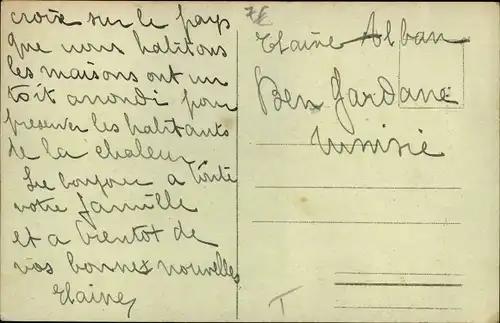 croix sur le pays
que nous habitons
les maisons ont un
toit arrondi pour
préserver les habitants
de la chaleur
Le bonjour a toute
votre famille
et a bientot de
vos bonnes nouvelles
Elaine
7€
Elaine Alban
Ben Gardane
Tunisie
T